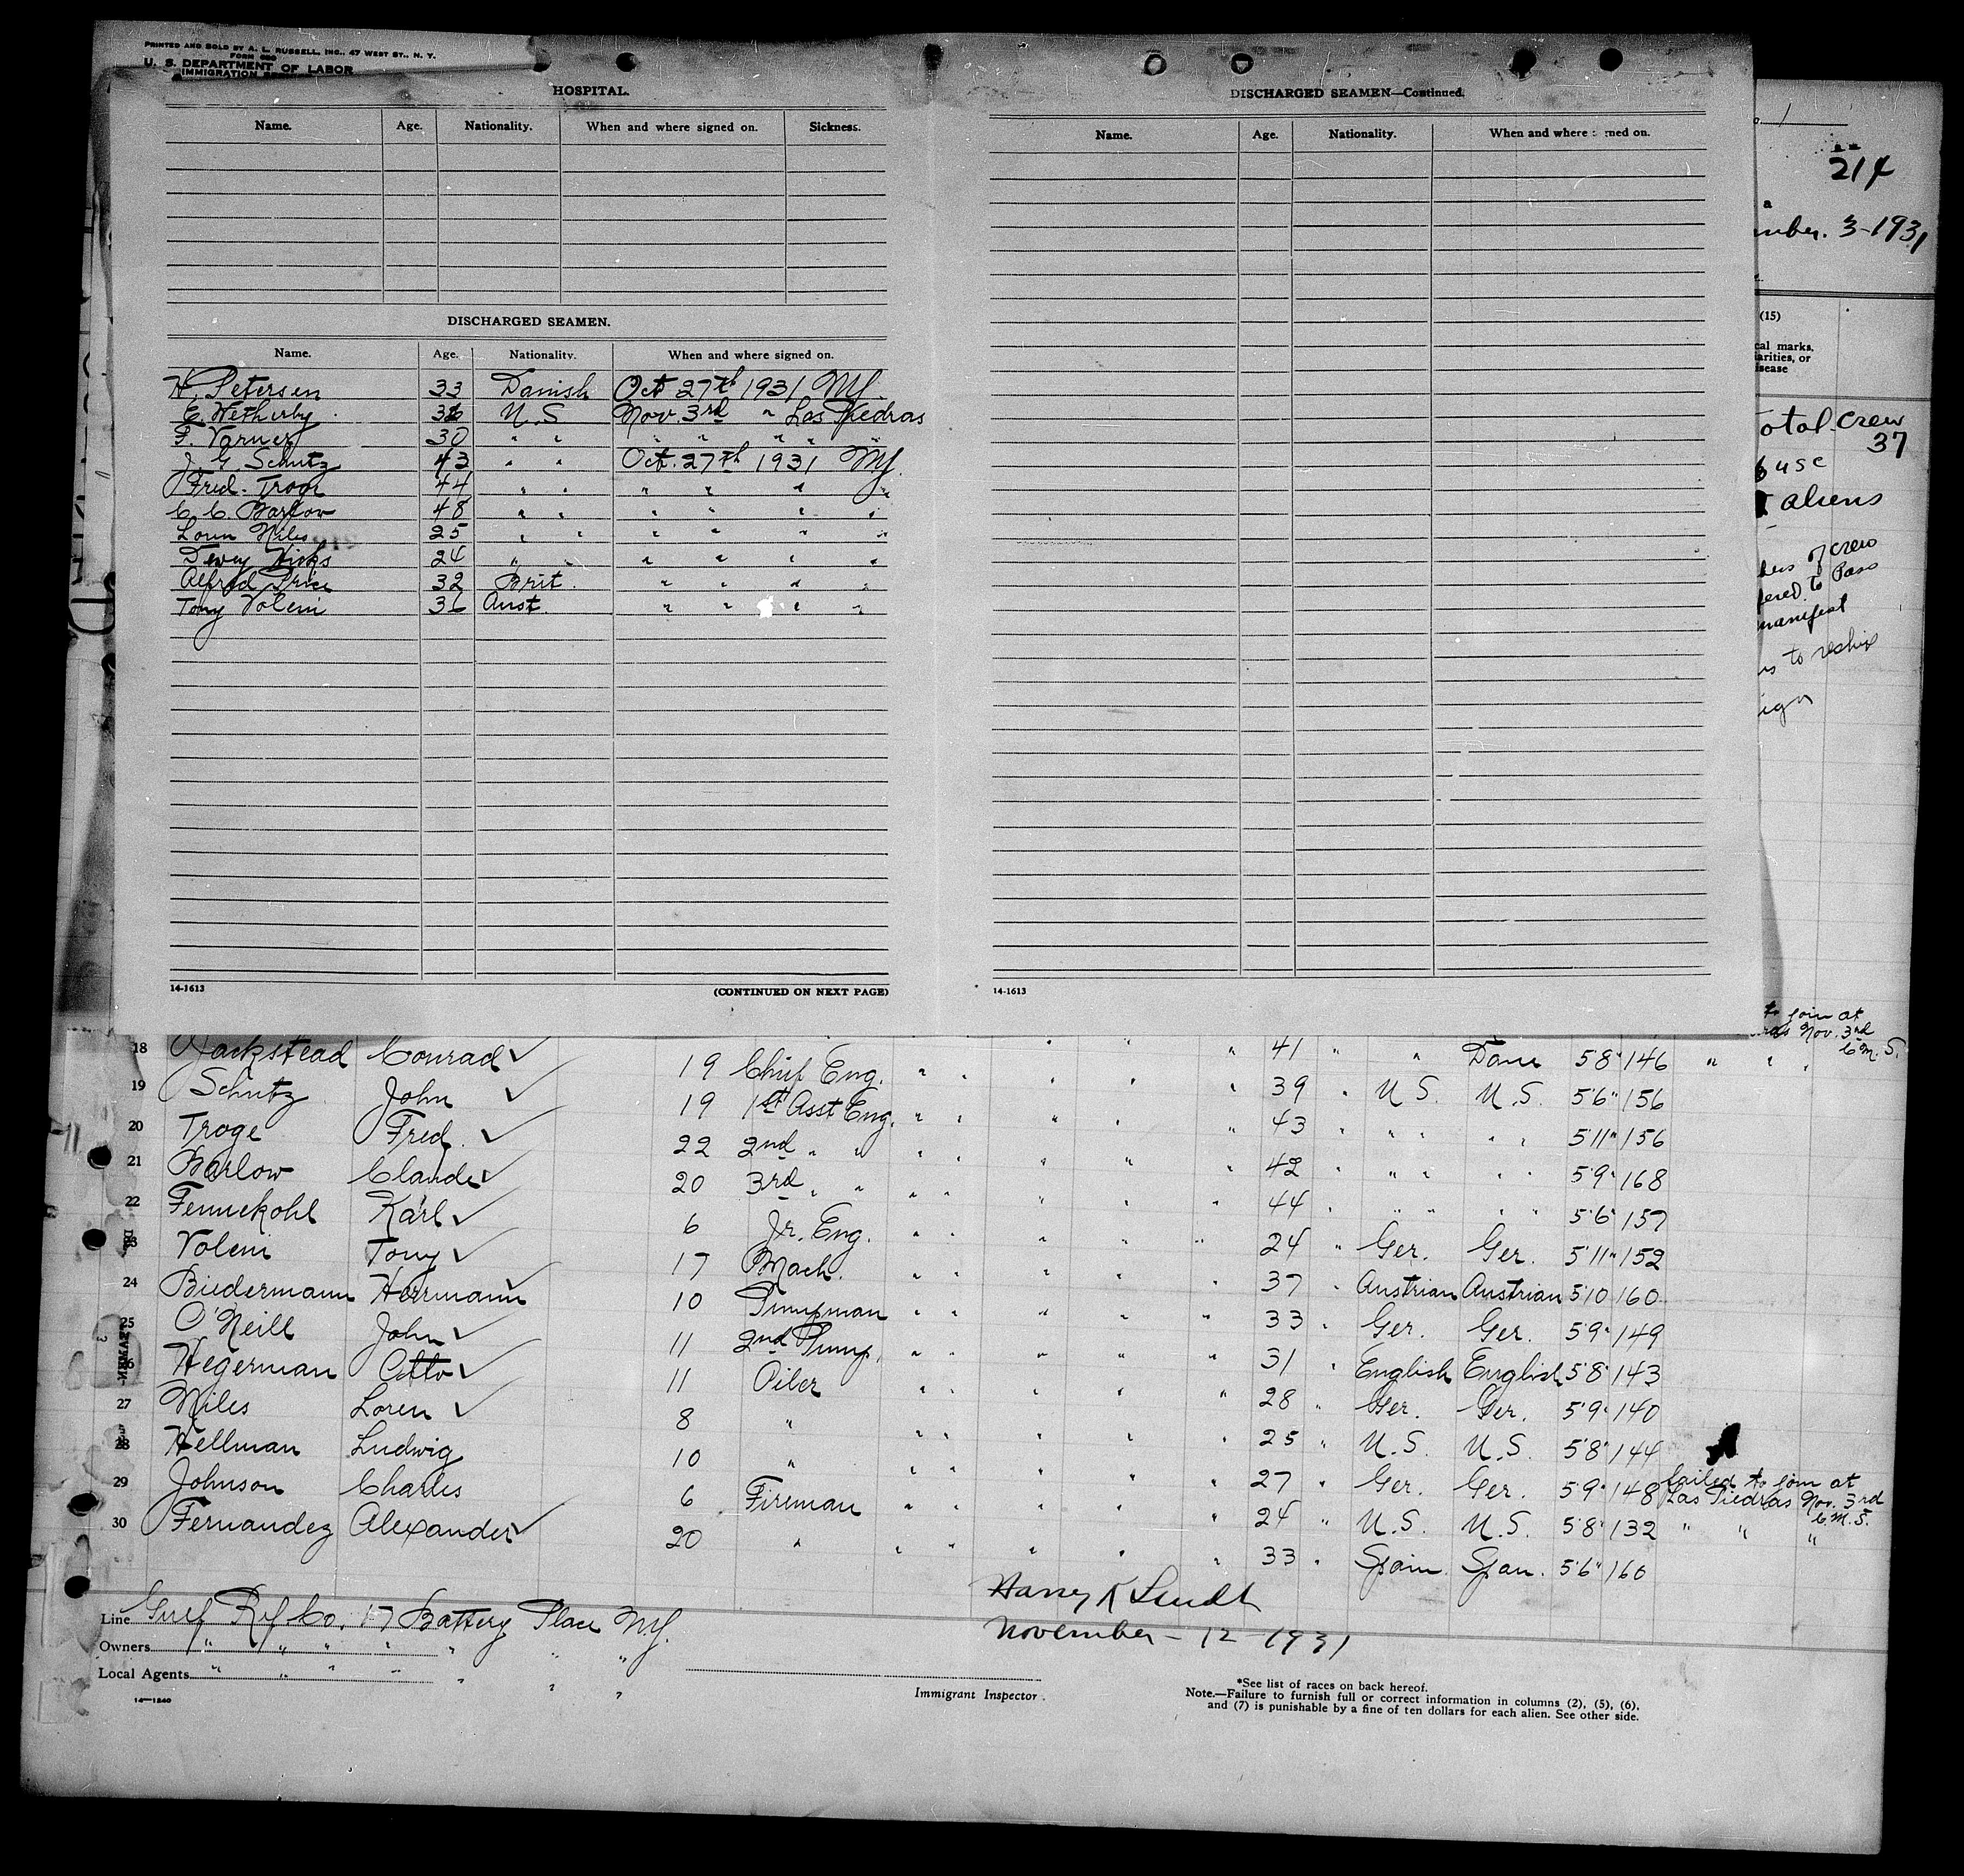 PRINTED AND SOLD BY A. L. RUSSELL, INC., 47 WEST ST., N. Y.
FORM 680
U. S. DEPARTMENT OF LABOR
IMMIGRATION
HOSPITAL.
Name. Age. Nationality. When and where signed on. Sickness.
DISCHARGED SEAMEN.
Name. Age. Nationality. When and where signed on.
H. Petersen 33 Danish Oct 27th 1931 NY.
E. Wetherby 36 U.S Nov. 3rd " Las Piedras
F. Varner 30 " " " " " " "
J. G. Schutz 43 " " Oct. 27th 1931 NY.
Fred. Troge 44 " " " " " "
C. C. Barlow 48 " " " " " "
Loren Niles 25 " " " " " "
Dewey Hicks 24 " " " " " "
Alfred Price 32 Brit. " " " "
Tony Voleni 36 Aust. " " " "
14-1613 (CONTINUED ON NEXT PAGE)
DISCHARGED SEAMEN—Continued.
Name. Age. Nationality. When and where signed on.
14-1613
1
214
a
mber. 3-1931
(15)
cal marks,
iarities, or
isease
otal Crew
37
6 usc
aliens
bers of crew
fered to Pass
manifest
to reship
ign
to join at
ras Nov. 3rd
C.M.S.
18 Jackstead Conrad ✓ 19 Chief Eng. " " " " " 41 " " Dane 5'8" 146 " " "
19 Schutz John ✓ 19 1st Asst Eng. " " " " " 39 " U.S. U.S. 5'6" 156
20 Troge Fred. ✓ 22 2nd " " " " " " " 43 " " " " " 5'11" 156
21 Barlow Claude ✓ 20 3rd " " " " " " " 42 " " " " " 5'9" 168
22 Fennekohl Karl ✓ 6 Jr. Eng. " " " " " 44 " " " " " 5'6" 157
23 Voleni Tony ✓ 17 Mach. " " " " " 24 " Ger. Ger. 5'11" 152
24 Biedermann Herrmann ✓ 10 Pumpman " " " " " 37 " Austrian Austrian 5'10 160
25 O'Neill John ✓ 11 2nd Pump. " " " " " 33 " Ger. Ger. 5'9" 149
26 Hegerman Otto ✓ 11 Oiler " " " " " 31 " English English 5'8" 143
27 Niles Loren ✓ 8 " " " " " " 28 " Ger. Ger. 5'9" 140
28 Hellman Ludwig 10 " " " " " " 25 " U.S. U.S. 5'8" 144
29 Johnson Charles 6 Fireman " " " " " 27 " Ger. Ger. 5'9" 148 failed to join at
Las Piedras Nov. 3rd
C.M.S.
30 Fernandez Alexander ✓ 20 " " " " " " 24 " U.S. U.S. 5'8" 132 " " "
33 " Spain Span. 5'6" 160
Line Gulf Ref Co. 17 Battery Place N.Y.
Owners " " " " " " "
Local Agents " " " " " " "
14—1240
November - 12 1931
Immigrant Inspector.
*See list of races on back hereof.
Note.—Failure to furnish full or correct information in columns (2), (5), (6),
and (7) is punishable by a fine of ten dollars for each alien. See other side.